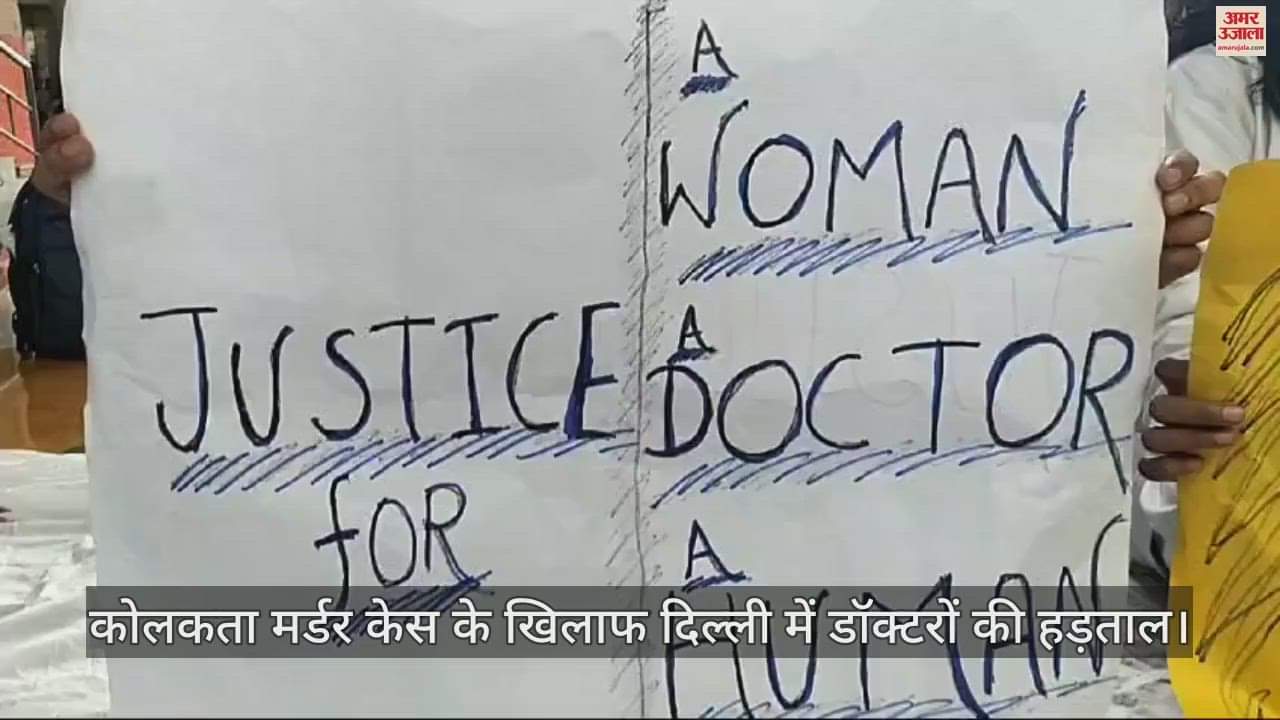 अमर
उजाला
amarujala.com
JUSTICE
fOR
A
WOMAN
A
DOCTOR
A
HUMAN
कोलकता मर्डर केस के खिलाफ दिल्ली में डॉक्टरों की हड़ताल।